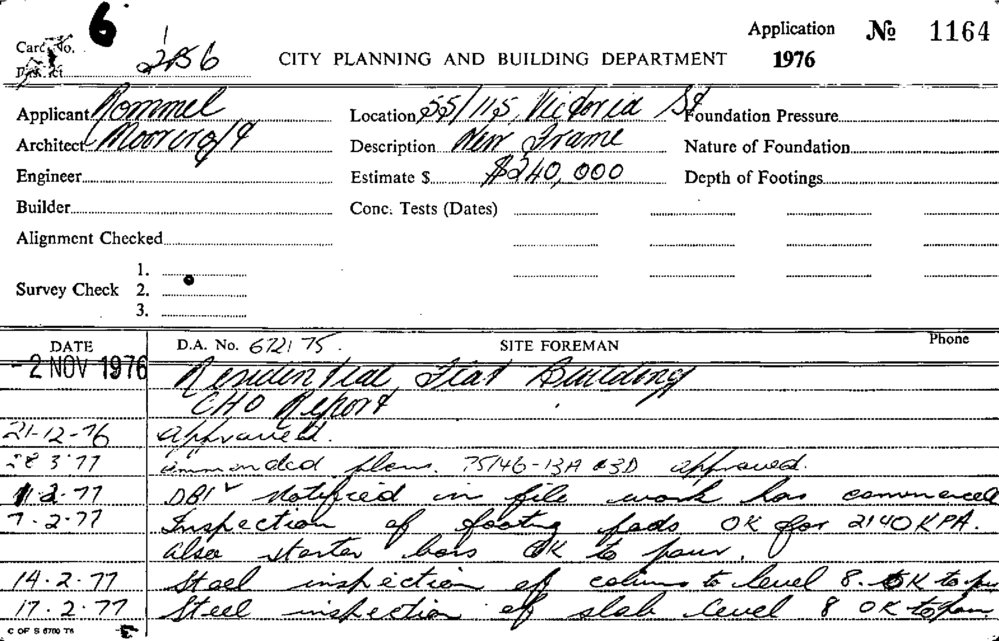 6
Application No 1164
Card No. 2856
CITY PLANNING AND BUILDING DEPARTMENT 1976
Applicant Rommel Location 55/115, Victoria St Foundation Pressure
Architect Moorcroft Description New Frame Nature of Foundation
Engineer Estimate $ $240,000 Depth of Footings
Builder Conc. Tests (Dates)
Alignment Checked
1.
Survey Check 2.
3.
DATE D.A. No. 672175. SITE FOREMAN Phone
-2 NOV 1976 Residential Flat Building
CHO Report
21-12-76 approved.
28 3 77 ammended plans. 75/46-13A &3D approved.
2-77 DBI notified in file work has commenced
7-2-77 Inspection of footing pads OK for 2140 KPA.
also starter bars OK to pour.
14-2-77 Steel inspection of colums to level 8. OK to
17-2-77 Steel inspection of slab level 8 OK to pour
C OF S 6700 T6